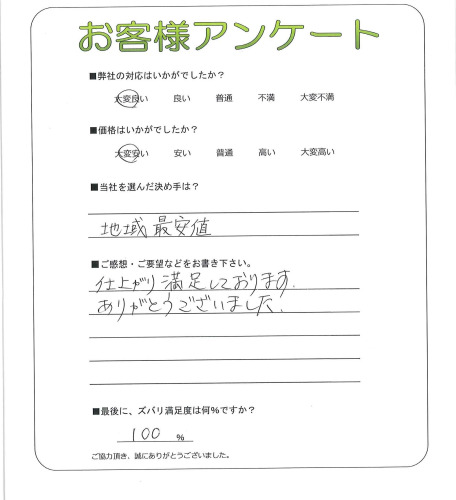 お客様アンケート
■弊社の対応はいかがでしたか？
大変良い 良い 普通 不満 大変不満
■価格はいかがでしたか？
大変安い 安い 普通 高い 大変高い
■当社を選んだ決め手は？
地域最安値
■ご感想・ご要望などをお書き下さい。
仕上がり満足しております.
ありがとうございました!
■最後に、ズバリ満足度は何%ですか？
100 %
ご協力頂き、誠にありがとうございました。